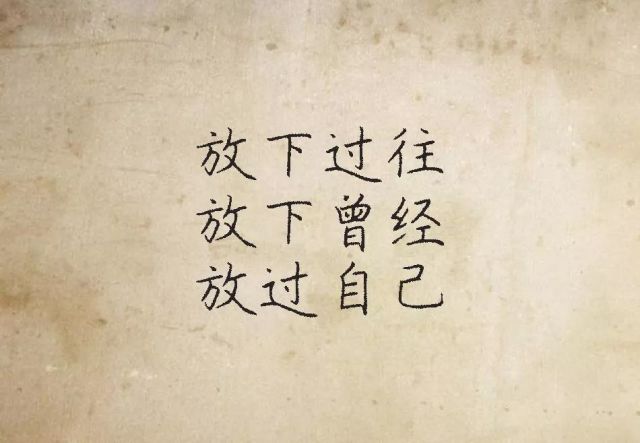 放下过往
放下曾经
放过自己